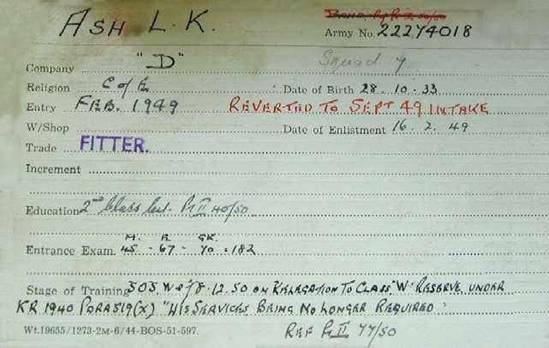 ASH L. K.
Army No. 22274018
Company "D" Squad 4
Religion C of E Date of Birth 28.10.33
Entry FEB. 1949 REVERTED TO SEPT 49 INTAKE
W/Shop Date of Enlistment 16.2.49
Trade FITTER.
Increment
Education 2nd Class Cert. Pt II 40/50
M. R. GK.
Entrance Exam. 45 - 67 - 70 = 182
Stage of Training SOS W e f 8.12.50 ON RELEGATION TO CLASS "W" RESERVE UNDER
KR 1940 PARA 519(X) "HIS SERVICES BEING NO LONGER REQUIRED"
Wt.19655/1273-2M-6/44-BOS-51-597. REF Pt II 77/50